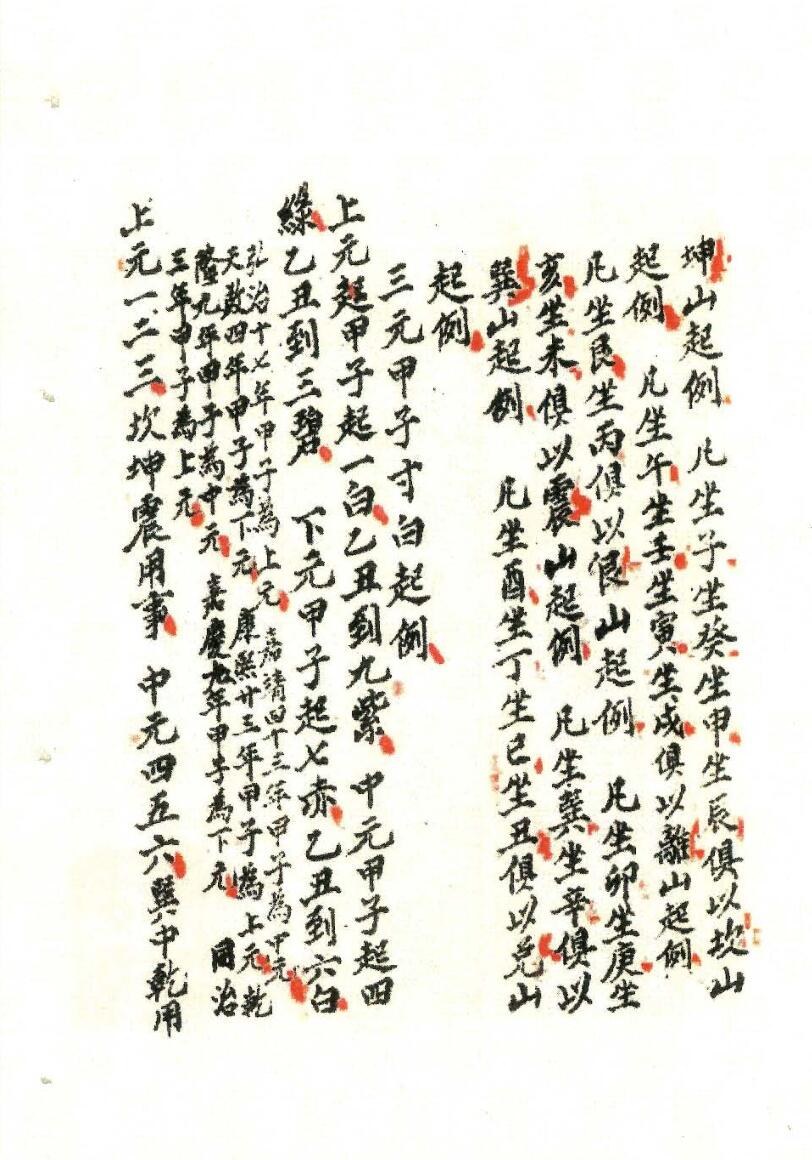 坤山起例　凡坐子坐癸坐申坐辰俱以坎山
起例　凡坐午坐壬坐寅坐戍俱以離山起例
凡坐艮坐丙俱以艮山起例　凡坐卯坐庚坐
亥坐未俱以震山起例　凡坐巽坐辛俱以
巽山起例　凡坐酉坐丁坐巳坐丑俱以兑山
起例
三元甲子寸白起例
上元起甲子起一白乙丑到九紫　中元甲子起四
綠乙丑到三碧　下元甲子起七赤乙丑到六白
弘治十七年甲子為上元　嘉清四十三年甲子為中元
天啟四年甲子為下元　康熙廿三年甲子為上元乾
隆九年甲子為中元　嘉慶九年甲子為下元　同治
三年甲子為上元
上元一二三坎坤震用事　中元四五六巽中乾用